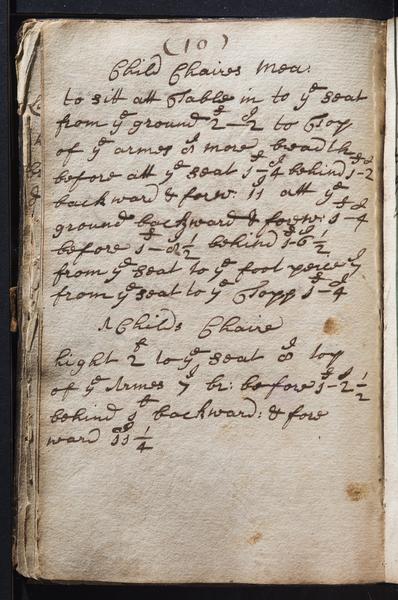 (10)
Child Chaires Mea:
to sitt att Table in to ye seat
from ye ground 2f-2 to Top
of ye armes 8 more breadth
before att ye seat 1f-4 behind 1f-2
backward & forw: 11 att ye
ground backward & forew: 1f-4
before 1f-8½ behind 1f-6½
from ye seat to ye foot peece 7
from ye seat to ye Topp 1f-4
A Childs Chaire
hight 2f to ye seat 8 top
of ye Armes 7 br: before 1f-2½
behind 1f backward: & fore
ward 11¼